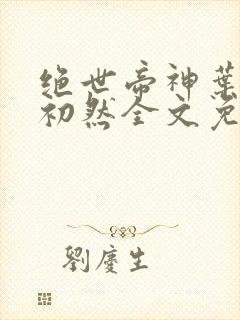 绝世帝神葉
初然全文免
劉慶生